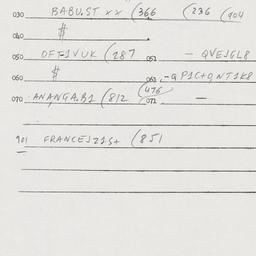 030 BABU.ST xx (366 (236 (904
040 # .
050 OFT1VUK (287 051 - QVEJGL8
060 # 061 -QP1C+QNT1K8
070 ANANGA.B1 (812 (476 071 -
901 FRANCEJ21S+ (851